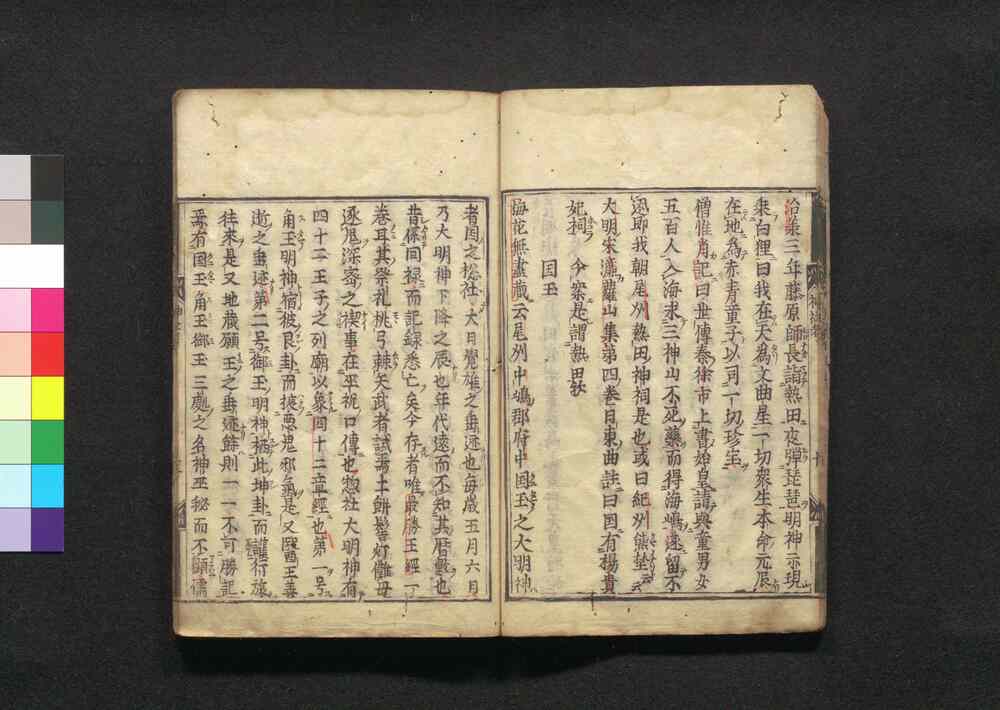 治承三年藤原師長詣熱田夜弾琵琶明神示現
衆白狸曰我在天為文曲星一切衆生本命元辰
在地為赤青童子以司一切珍宝
僧惟肖記曰世傳秦徐市上書始皇請與童男女
五百人入海求三神山不死藥而得海嶋遂留不
還即我朝尾州熱田神祠是也或曰紀州熊埜
大明宋濂蘿山集第四巻日東曲註曰国有楊貴
妃祠 今案是謂熱田歟
国玉
梅花無盡藏云尾州中嶋郡府中国玉之大明神
者国之惣社大日覺雄之垂迹也毎歳五月六月
乃大明神下降之辰也年代遠而不知其暦数也
昔係回禄而記録悉亡矣今存者唯最勝王經一
巻耳其祭礼桃弓棘矢武者試焉土餅鬢灯儺母
逐鬼深密之禊事在巫祝口傳也惣社大明神有
四十二王子之列廟以象四十二章經也第一号
角王明神宿彼艮卦而撓悪鬼邪氣是又醫王善
逝之垂迹第二号御王明神栖此坤卦而護行旅
往來是又地蔵願王之垂迹餘則一一不可勝記
焉有国玉角王御王三處之名神巫秘而不顕儒